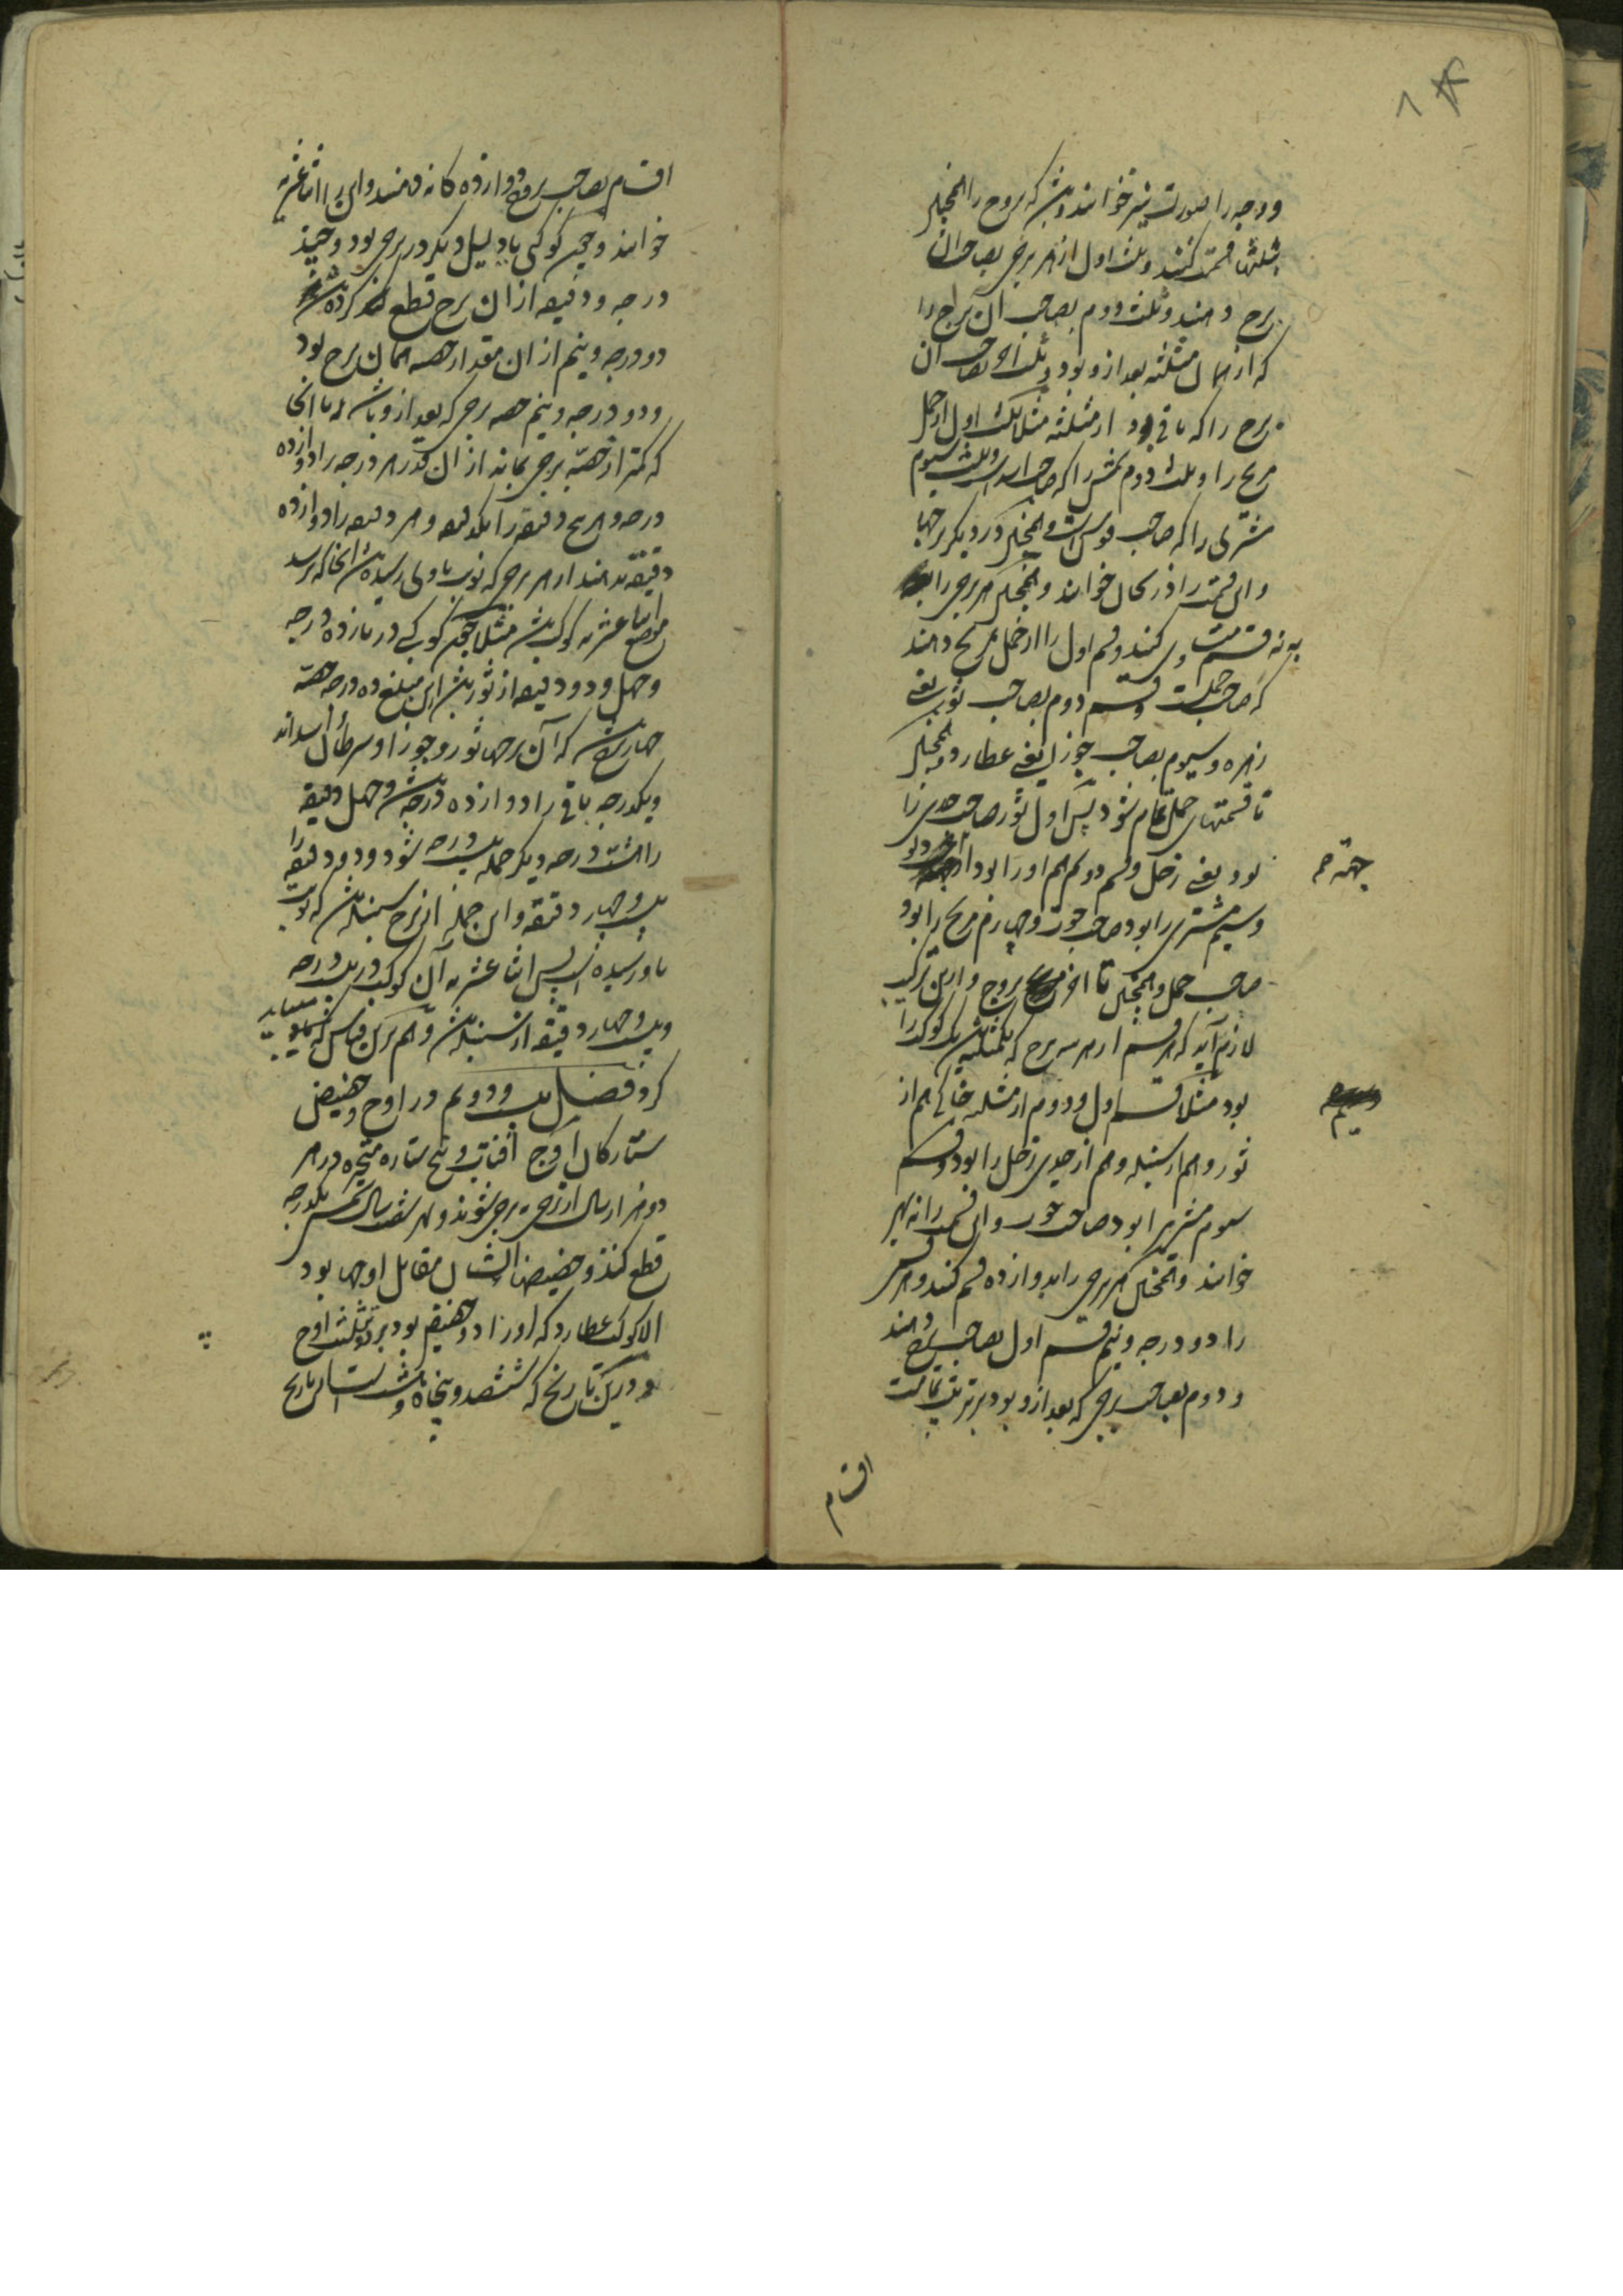 و وجه را صورت نیز خوانند و بیشتر که بروج را همچنین
بثلثها قسمت کنند و ثلث اول از هر برجی بصاحب آن
برج دهند و ثلث دوم بصاحب آن برج را
که از همان مثلثه بعد ازو بود و ثلث آخر بصاحب آن
برج را که باقی بود از مثلثه مثلا ثلث اول از حمل
مریخ را و ثلث دوم شمس را که صاحب اسد است و ثلث سیوم
مشتری را که صاحب قوس است و همچنین در دیگر برجها
و این قسمت را دریجان خوانند و همچنین هر برجی را
به نه قسمت کنند و قسم اول را از حمل بمریخ دهند
که صاحب حملست و قسم دوم بصاحب ثور یعنی
زهره و سیوم بصاحب جوزا یعنی عطارد و همچنین
تا قسمتهای حمل تمام شود پس اول ثور صاحب جدی را
بود یعنی زحل و قسم دوم هم او را بود از جهة دلو
و سیم مشتری را بود صاحب حوت و چهارم مریخ را بود
صاحب حمل و همچنین تا آخر بروج و ازین ترکیب
لازم آید که هر قسم از هر سه برج که یک مثلثه‌اند یک کوکب را
بود مثلا قسم اول و دوم از مثلثه خاکی هم از
ثور و هم از سنبله و هم از جدی زحل را بود و قسم
سوم مشتری را بود صاحب حوت و این قسمت را نه بهر
خوانند و همچنین هر برجی را بدوازده قسم کنند و هر قسمی
را دو درجه و نیم قسم اول بصاحب برج دهند
و دوم بصاحب برجی که بعد ازو بود برترتیب تمامت
اقسام
جهة م
سیم
اقسام بصاحب بروج دوازده‌گانه دهند و این را اثناعشریه
خوانند و چون کوکبی یا دلیل دیگر در برجی بود و چند
درجه و دقیقه از آن برج قطع کرده باشد
دو درجه و نیم از آن مقدار حصه همان برج بود
و دو درجه و نیم حصه برجی که بعد ازو باشد تا آنجا
که کمتر از حصه برجی بماند از آن قدر هر درجه را دوازده
درجه و هر پنج دقیقه را یکدرجه و هر دقیقه را دوازده
دقیقه بدهند از هر برجی که نوبت باو رسیده باشد آنجا که برسد
موضع اثناعشریه کوکب باشد مثلا چون کوکبی در یازده درجه
و چهل و دو دقیقه از ثور باشد ازین مبلغ ده درجه حصه
چهار برج باشد که آن برجها ثور و جوزا و سرطان و اسداند
و یکدرجه باقی را دوازده درجه باشد و چهل دقیقه
را هشت درجه دیگر جمله بیست درجه شود و دو دقیقه را
بیست و چهار دقیقه و این جمله از برج سنبله باشد که نوبت
باو رسیده است پس اثناعشریه آن کوکب در بیست درجه
و بیست و چهار دقیقه از سنبله باشد و هم برین قیاس
کرد فصل بیست و دویم در اوج و حضیض
ستارگان اوج آفتاب و پنج ستاره متحیره در هر
دو هزار سال از برجی ببرجی شوند و بهر شصت سال شمسی یکدرجه
قطع کنند و حضیض ایشان مقابل اوج بود
الا کوکب عطارد که او را دو حضیض بود بر دو تثلیث اوج
و درین تاریخ که ششصد و پنجاه و هشت است این تاریخ